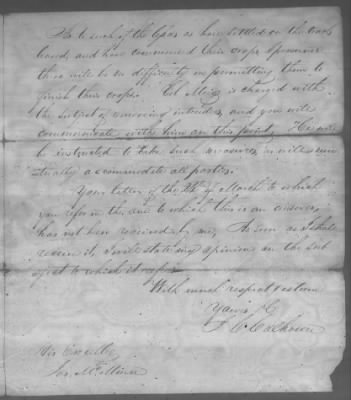 As to such of the Ogans as have settled on the
lands, and have commenced their crops, I presume
there will be no difficulty in permitting them to
finish their crops. Col. Meigs is charged with
the subject of removing intruders, and you will
communicate with him on this point. He will
be instructed to take such measures as will
mutually accommodate all parties.
Your letter of the of March to which
you refer in the one to which this is an answer,
has not been received by me, As soon as I shall
receive it, I will state my opinion on the sub
ject to which it refers
With much respect & esteem
Yours &
J C Calhoun
His Excelly
Jos. McMinn